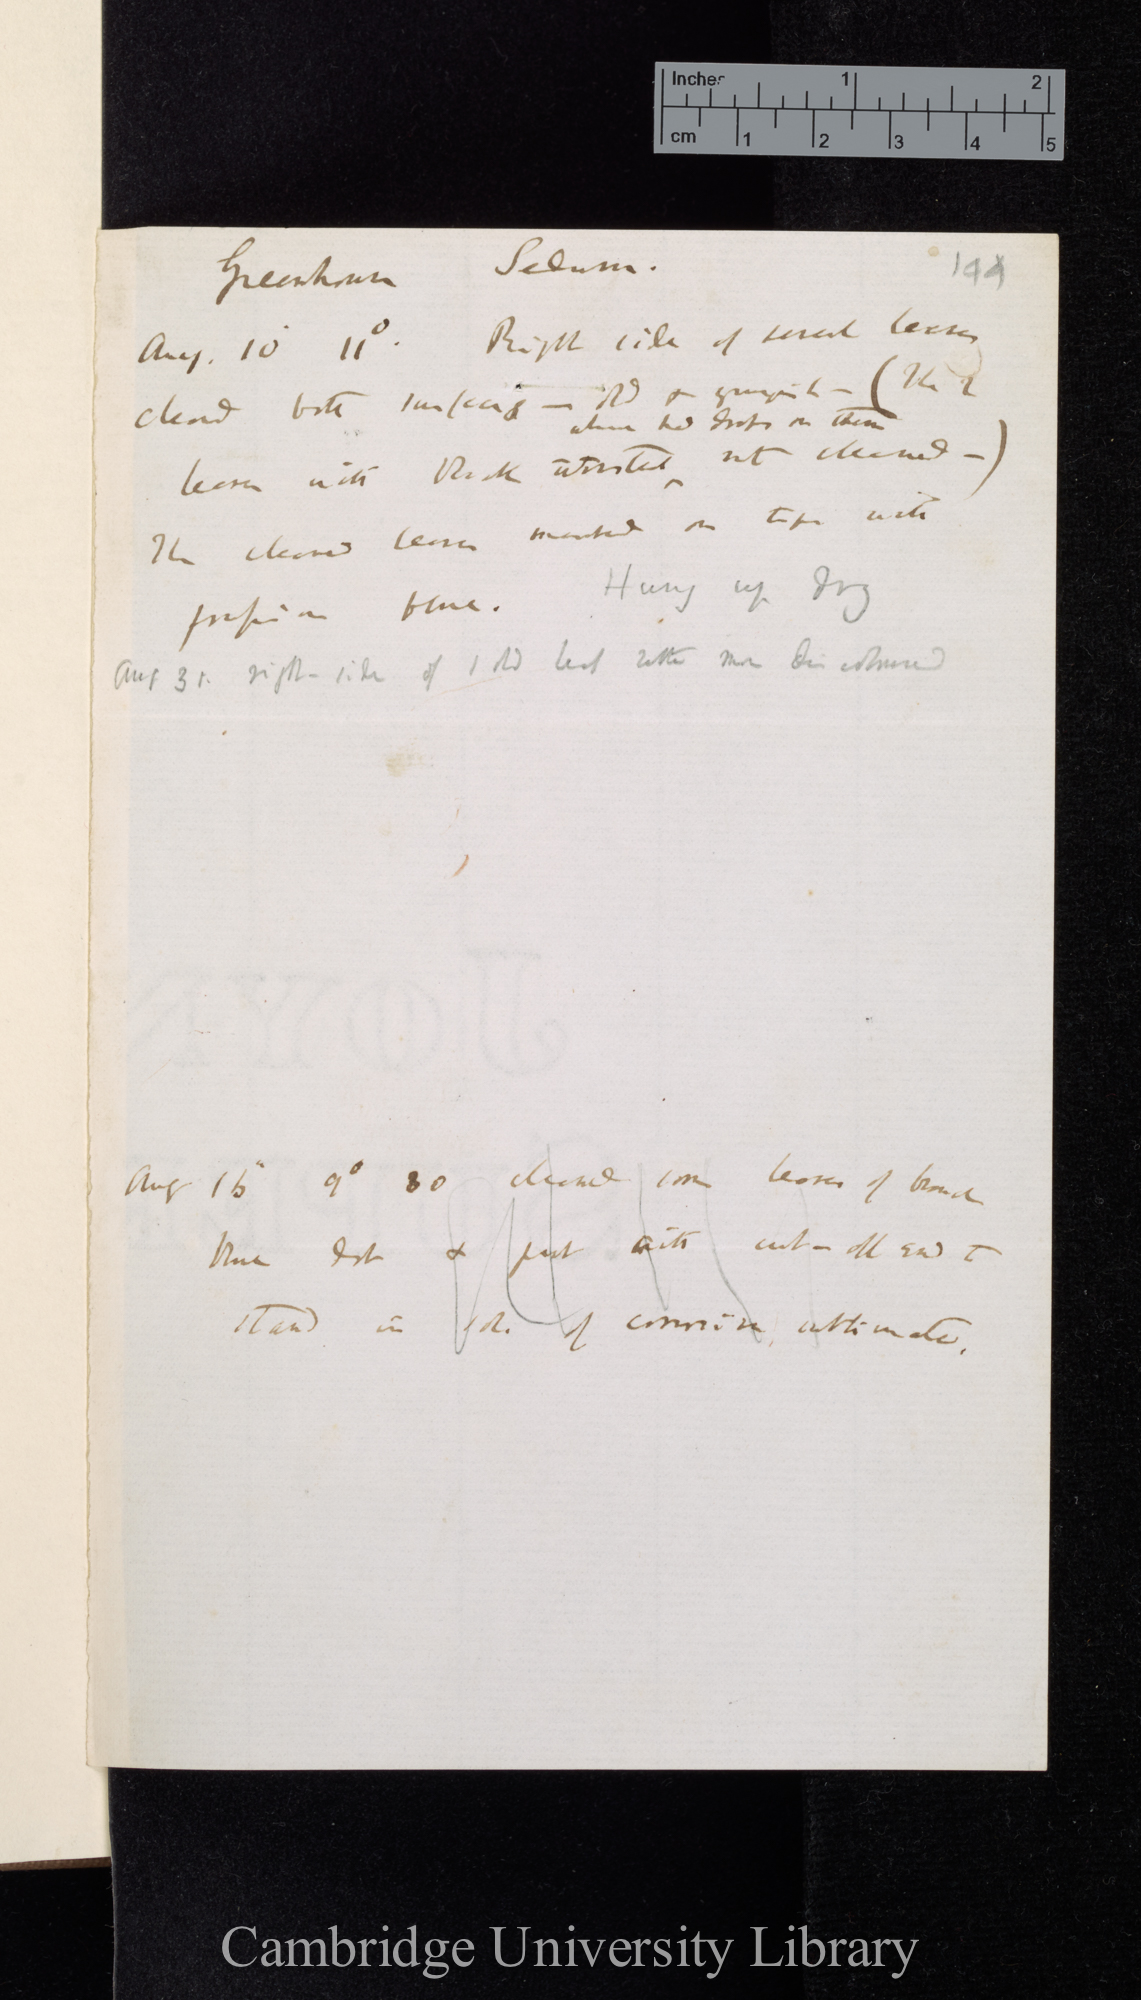 Inches 1 2
cm 1 2 3 4 5
Greenhouse Sedum.
144
Aug. 10 11°. Right side of several leaves
cleaned both surfaces — old & youngish — (The 2
alone had drops on them
leaves with black not cleaned —)
The cleaned leaves marked on tips with
prussian blue. Hung up Dry
Aug 31. right-side of 1 old leaf rather more discoloured
Aug 16 9° 30 cleaned some leaves of branch
blue dot & put with cut-off end to
stand in sol. of corrosive sublimate.
Cambridge University Library